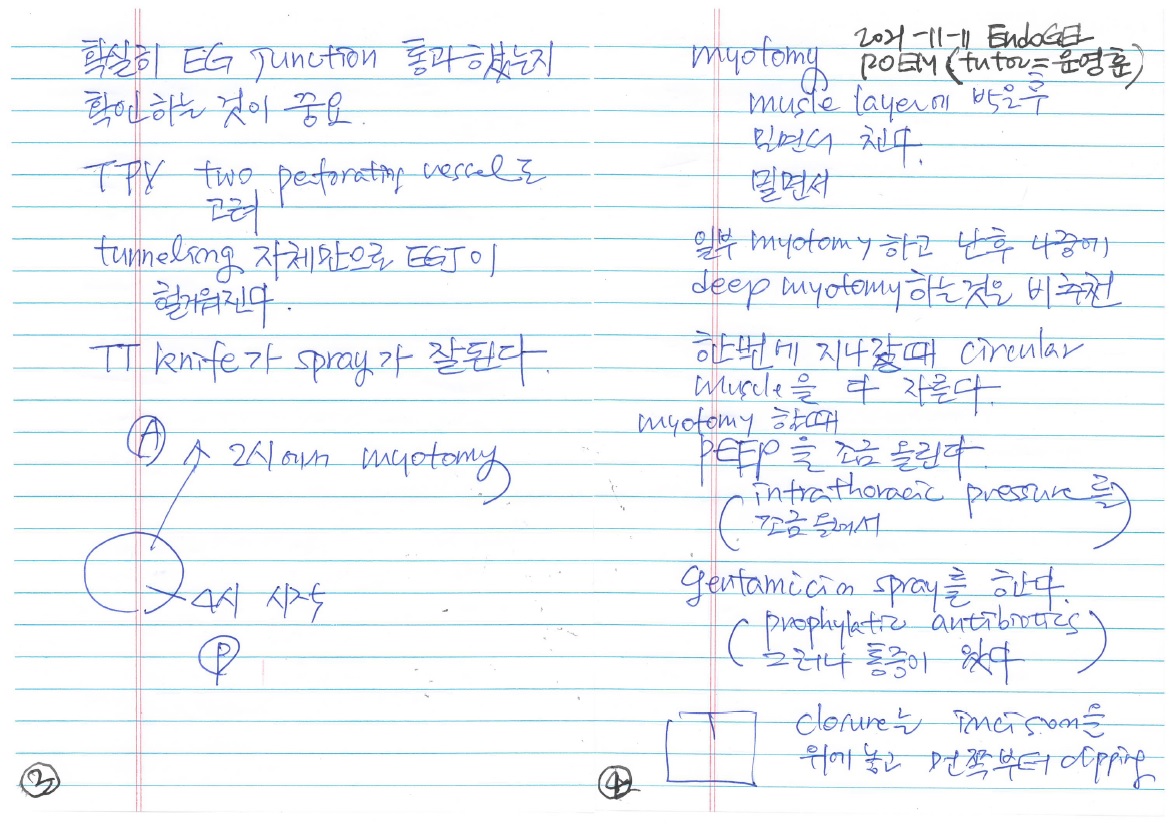 확실히 EG junction 통과했는지
확인하는 것이 중요.
TPV two perforating vessel도
고려
tunneling 자체만으로 EGJ이
헐거워진다.
TT knife가 spray가 잘된다.
A
2시에서 myotomy
4시 시작
P
3
2021-11-11 EndoGEL
myotomy POEM (tutor = 윤영훈)
muscle layer에 박은후
밀면서 친다.
밀면서
일부 myotomy 하고 난후 나중에
deep myotomy하는것은 비추천
한번에 지나갈때 circular
muscle을 다 자른다.
myotomy 할때
PEEP을 조금 올린다.
(intrathoracic pressure를
조금 올려서)
gentamicin spray를 한다.
(prophylatic antibiotics)
그러나 통증이 있다
closure는 incision을
위에 놓고 먼쪽부터 clipping
4